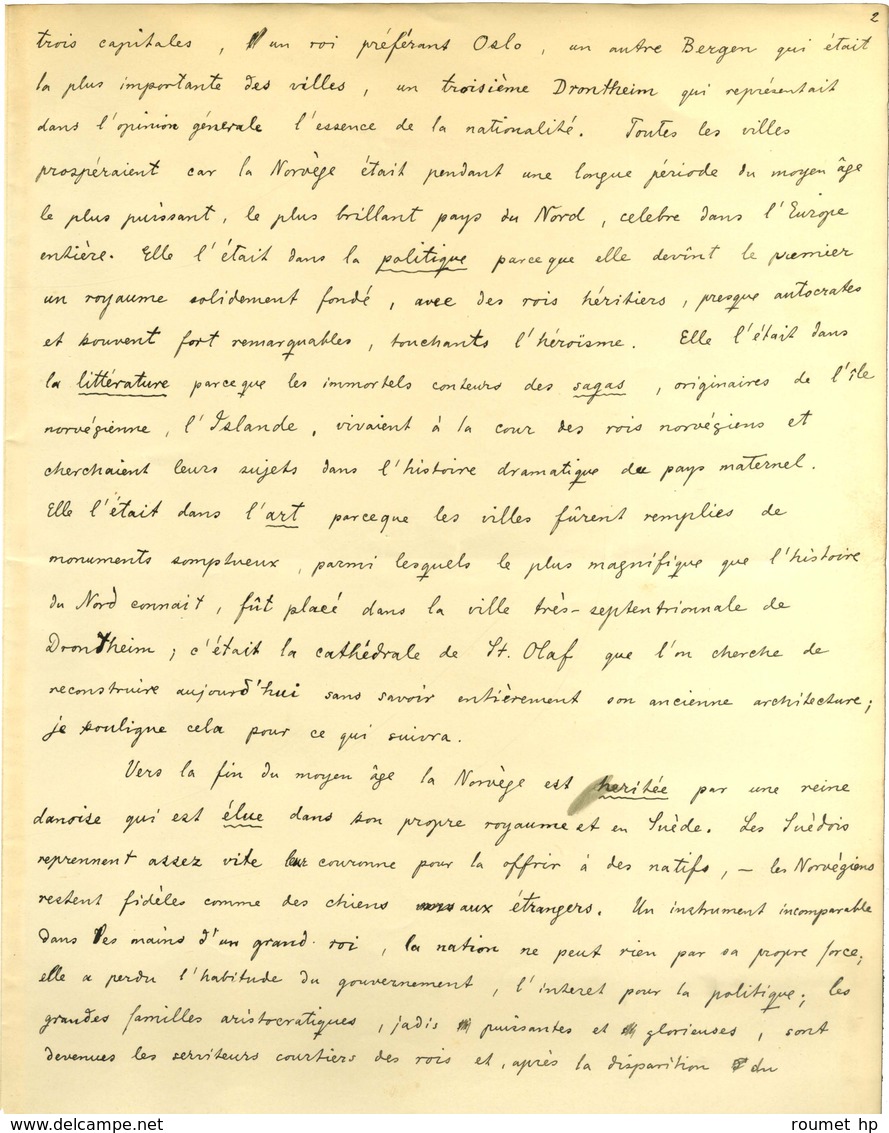 2
trois capitales, un roi préférant Oslo, un autre Bergen qui était
la plus importante des villes, un troisième Drontheim qui représentait
dans l'opinion générale l'essence de la nationalité. Toutes les villes
prospéraient car la Norvège était pendant une longue période du moyen âge
le plus puissant, le plus brillant pays du Nord, celebre dans l'Europe
entière. Elle l'était dans la politique parceque elle devînt le premier
un royaume solidement fondé, avec des rois héritiers, presque autocrates
et souvent fort remarquables, touchants l'héroïsme. Elle l'était dans
la littérature parceque les immortels conteurs des sagas, originaires de l'île
norvégienne, l'Islande, vivaient à la cour des rois norvégiens et
cherchaient leurs sujets dans l'histoire dramatique du pays maternel.
Elle l'était dans l'art parceque les villes fûrent remplies de
monuments somptueux, parmi lesquels le plus magnifique que l'histoire
du Nord connait, fût placé dans la ville très-septentrionnale de
Drontheim; c'était la cathédrale de St. Olaf que l'on cherche de
reconstruire aujourd'hui sans savoir entièrement son ancienne architecture;
je souligne cela pour ce qui suivra.
Vers la fin du moyen âge la Norvège est heritée par une reine
danoise qui est élue dans son propre royaume et en Suède. Les Suédois
reprennent assez vite leur couronne pour la offrir à des natifs, — les Norvégiens
restent fidèles comme des chiens aux étrangers. Un instrument incomparable
dans les mains d'un grand roi, la nation ne peut rien par sa propre force;
elle a perdu l'habitude du gouvernement, l'interet pour la politique; les
grandes familles aristocratiques, jadis puissantes et glorieuses, sont
devenues les serviteurs courtiers des rois et, après la disparition du
www.delcampe.net
roumet hp